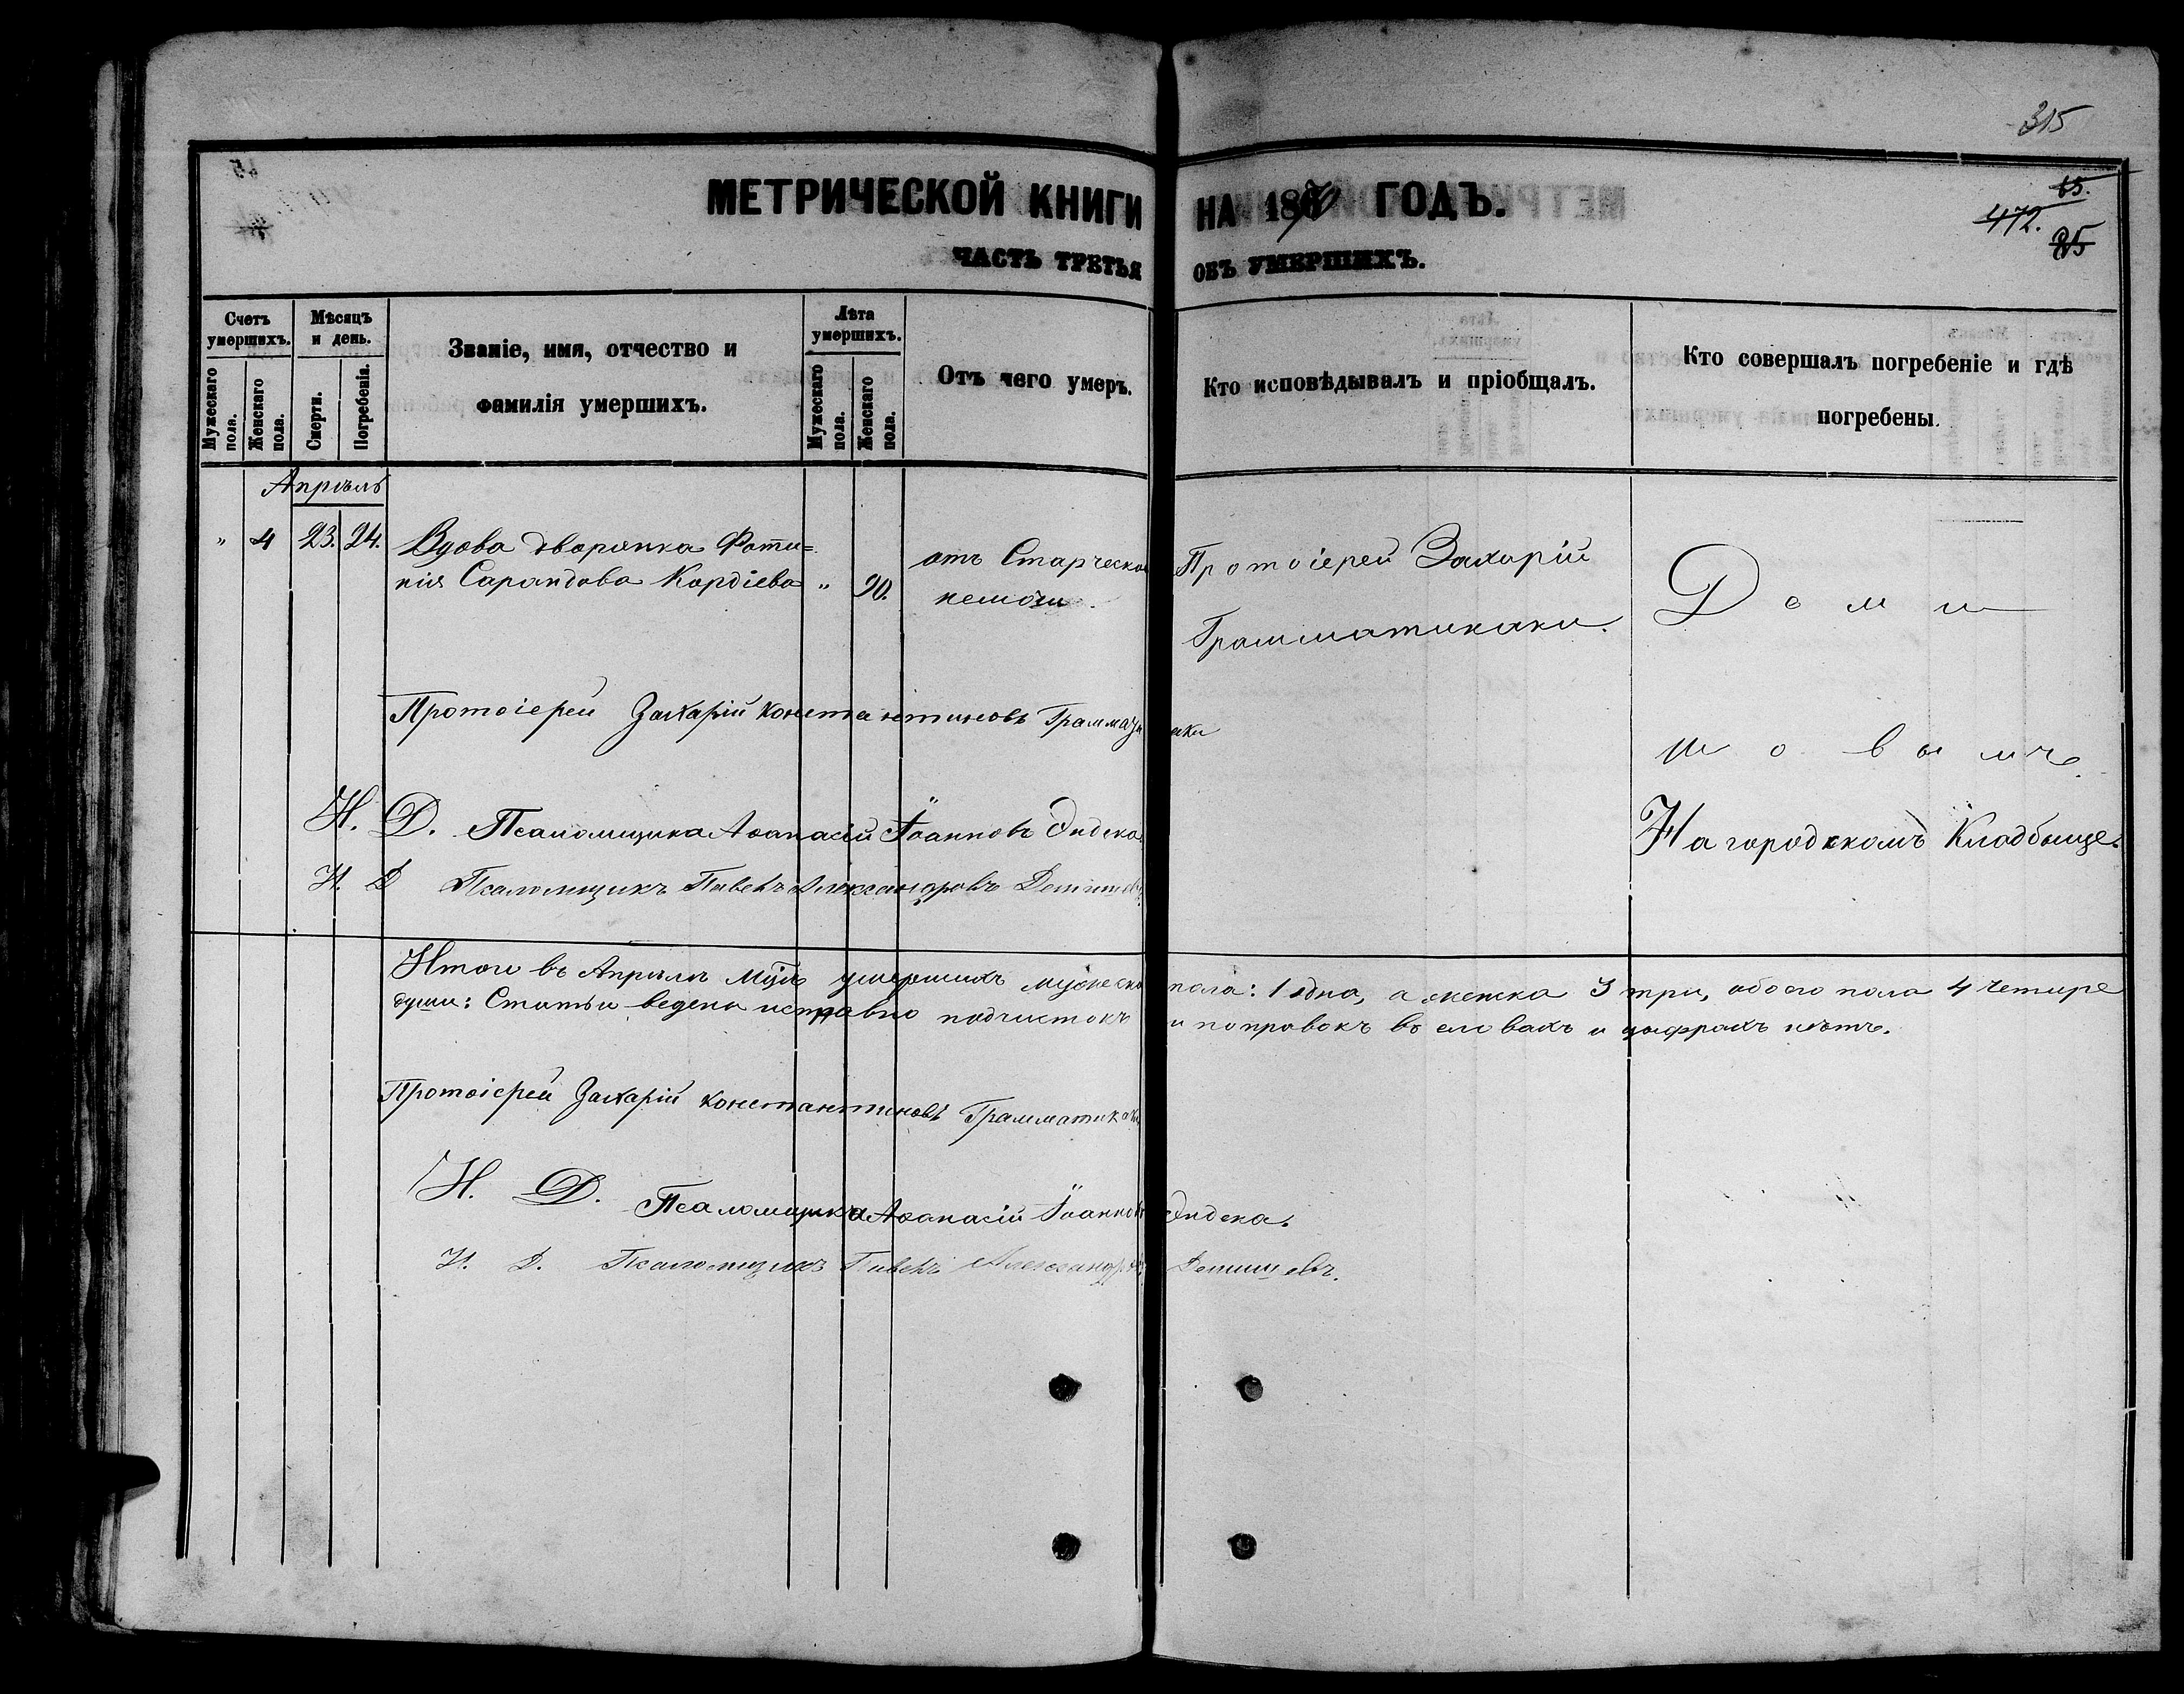 315
МЕТРИЧЕСКОЙ КНИГИ НА 1870 ГОДЪ.
65.
472.
85
ЧАСТЬ ТРЕТЬЯ ОБЪ УМЕРШИХЪ.
Счетъ умершихъ.
Мужескаго пола.
Женскаго пола.
Мѣсяцъ и день.
Смерти.
Погребенія.
Званіе, имя, отчество и
фамилія умершихъ.
Лѣта умершихъ.
Мужескаго пола.
Женскаго пола.
Отъ чего умеръ.
Кто исповѣдывалъ и пріобщалъ.
Кто совершалъ погребеніе и гдѣ
погребены.
Апрѣль
" 4 23. 24. Вдова дворянка Фоти=
нія Сарандова Кордіева " 90.
отъ Старческой
немочи.
Протоіерей Захарій
Грамматикаки.
Т о м ж
Протоіерей Захарій Константиновъ Грамматикаки
т о в ы м ъ
И. Д. Псаломщика Аѳанасій Іоанновъ Эндека.
На городскомъ Кладбище.
И. Д Псаломщикъ Александровъ
Итого въ Апрѣлѣ Мцѣ умершихъ мужеска пола: 1 одна, а женска 3 три, обоего пола 4 четыре
души: Статьи ведены исправно подчистокъ и поправокъ въ словахъ и цыфрахъ нѣтъ.
Протоіерей Захарій Константиновъ Грамматикаки
И. Д. Псаломщика Аѳанасій Іоанновъ Эндека.
И. Д. Псаломщикъ Александровъ